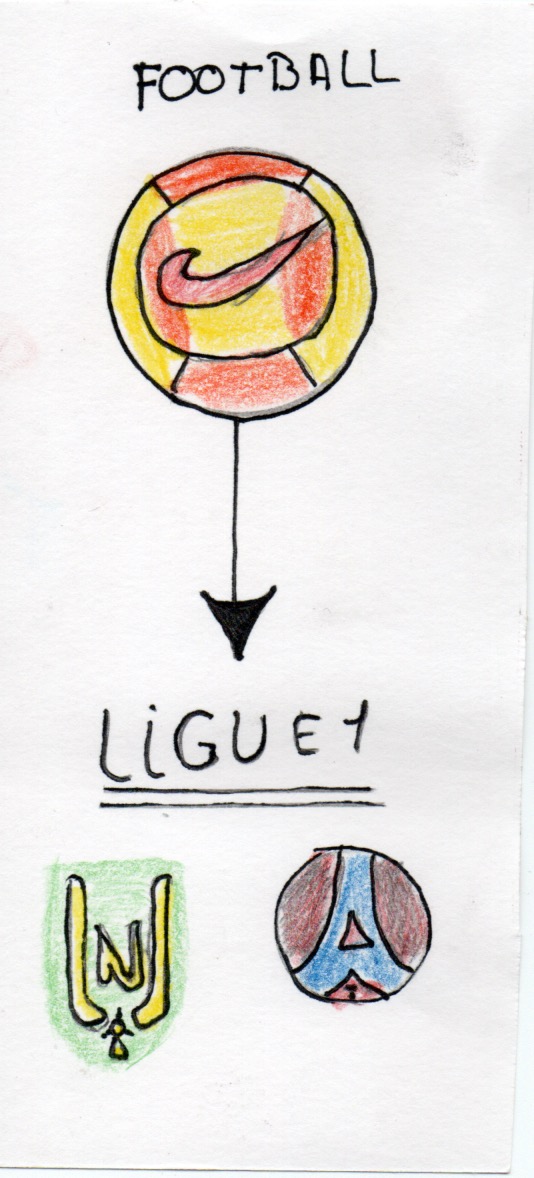 FOOTBALL
LiGUE1
N